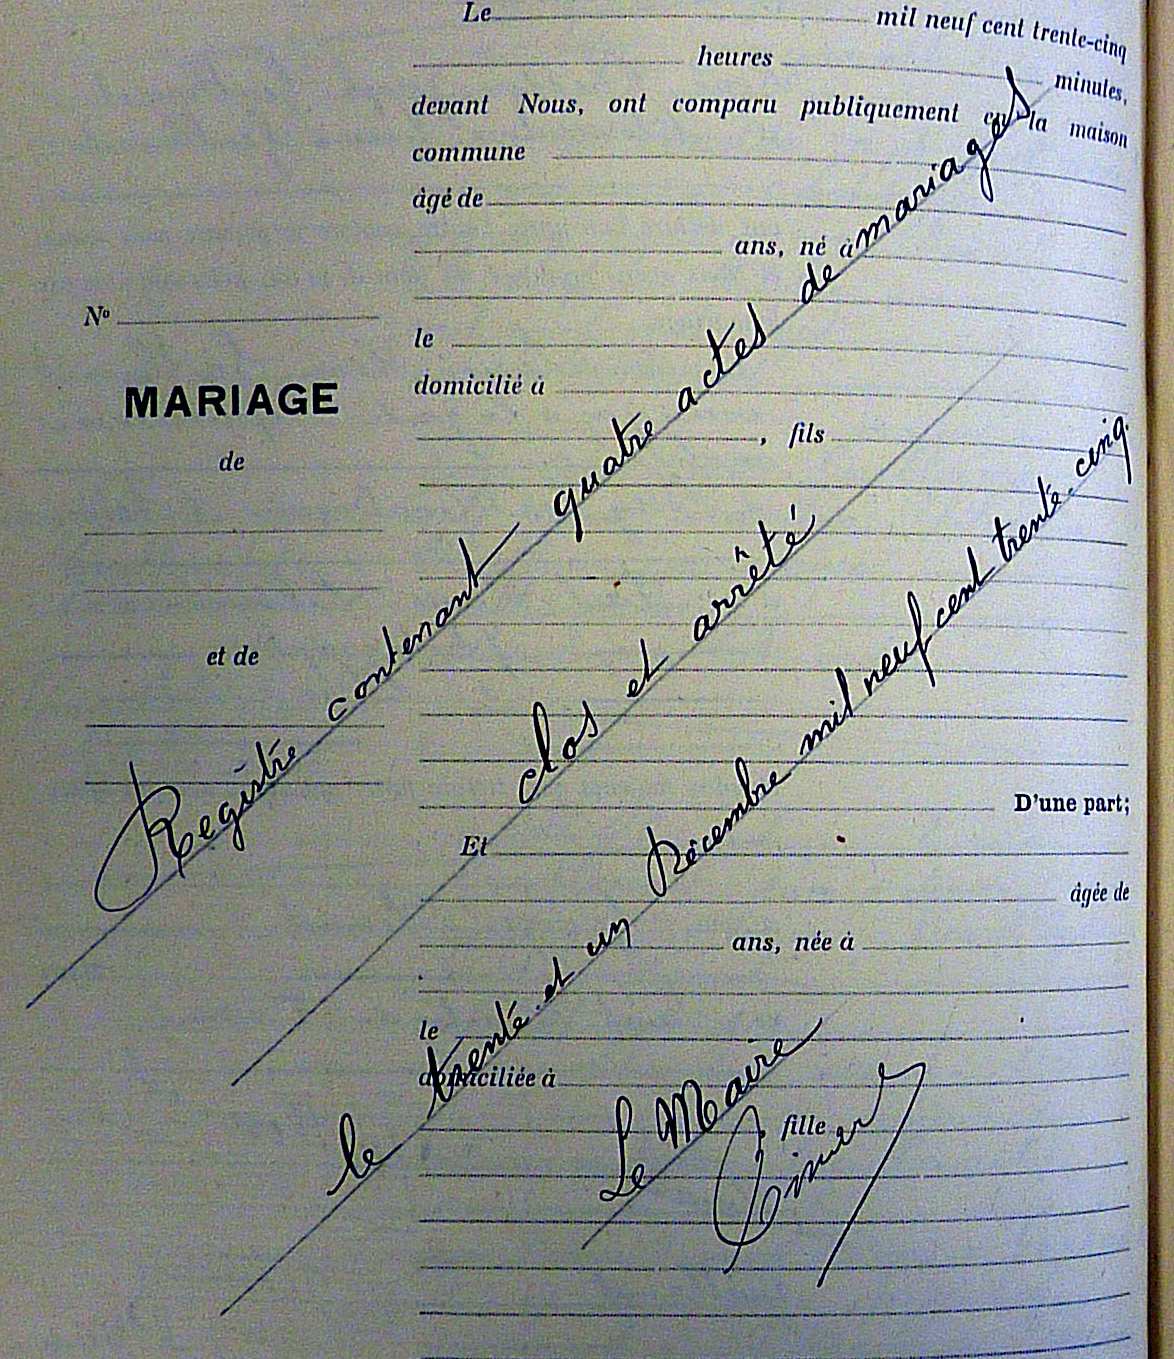 Le mil neuf cent trente-cinq
heures minutes,
devant Nous, ont comparu publiquement en la maison
commune
âgé de
ans, né à
No
le
MARIAGE
domicilié à
, fils
de
et de
D'une part;
Et
âgée de
ans, née à
le
domiciliée à
, fille
Registre contenant quatre actes de mariages
clos et arrêté
le trente et un Décembre mil neuf cent trente-cinq.
Le Maire